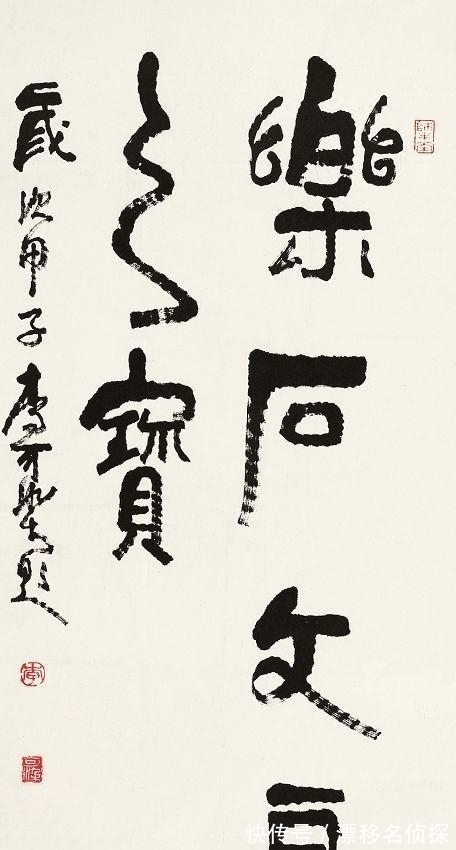 樂石文
之寶
歲次甲子李可染題
快传号 / 漂移名侦探